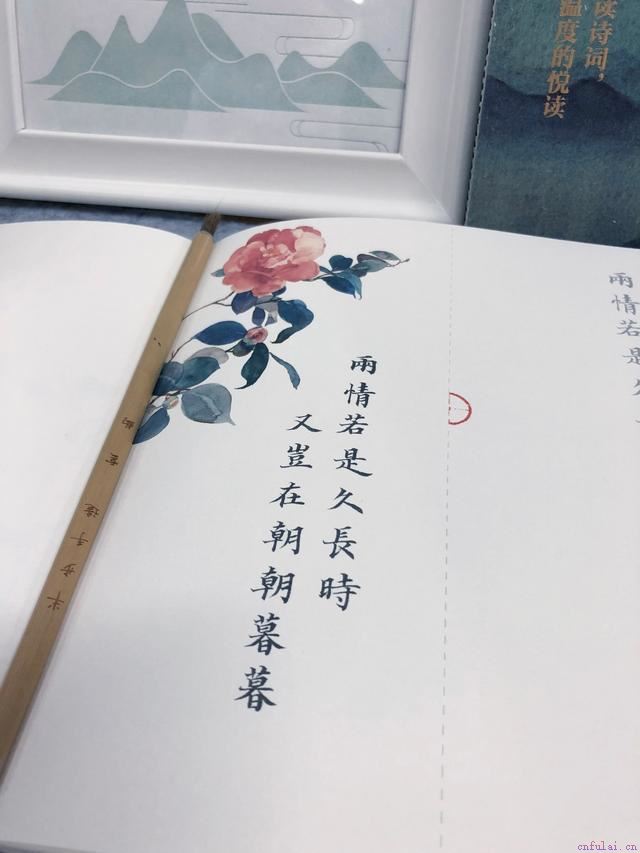 读诗词，
温度的悦读
兩情若是
兩情若是久長時
又豈在朝朝暮暮
cnfulai.cn